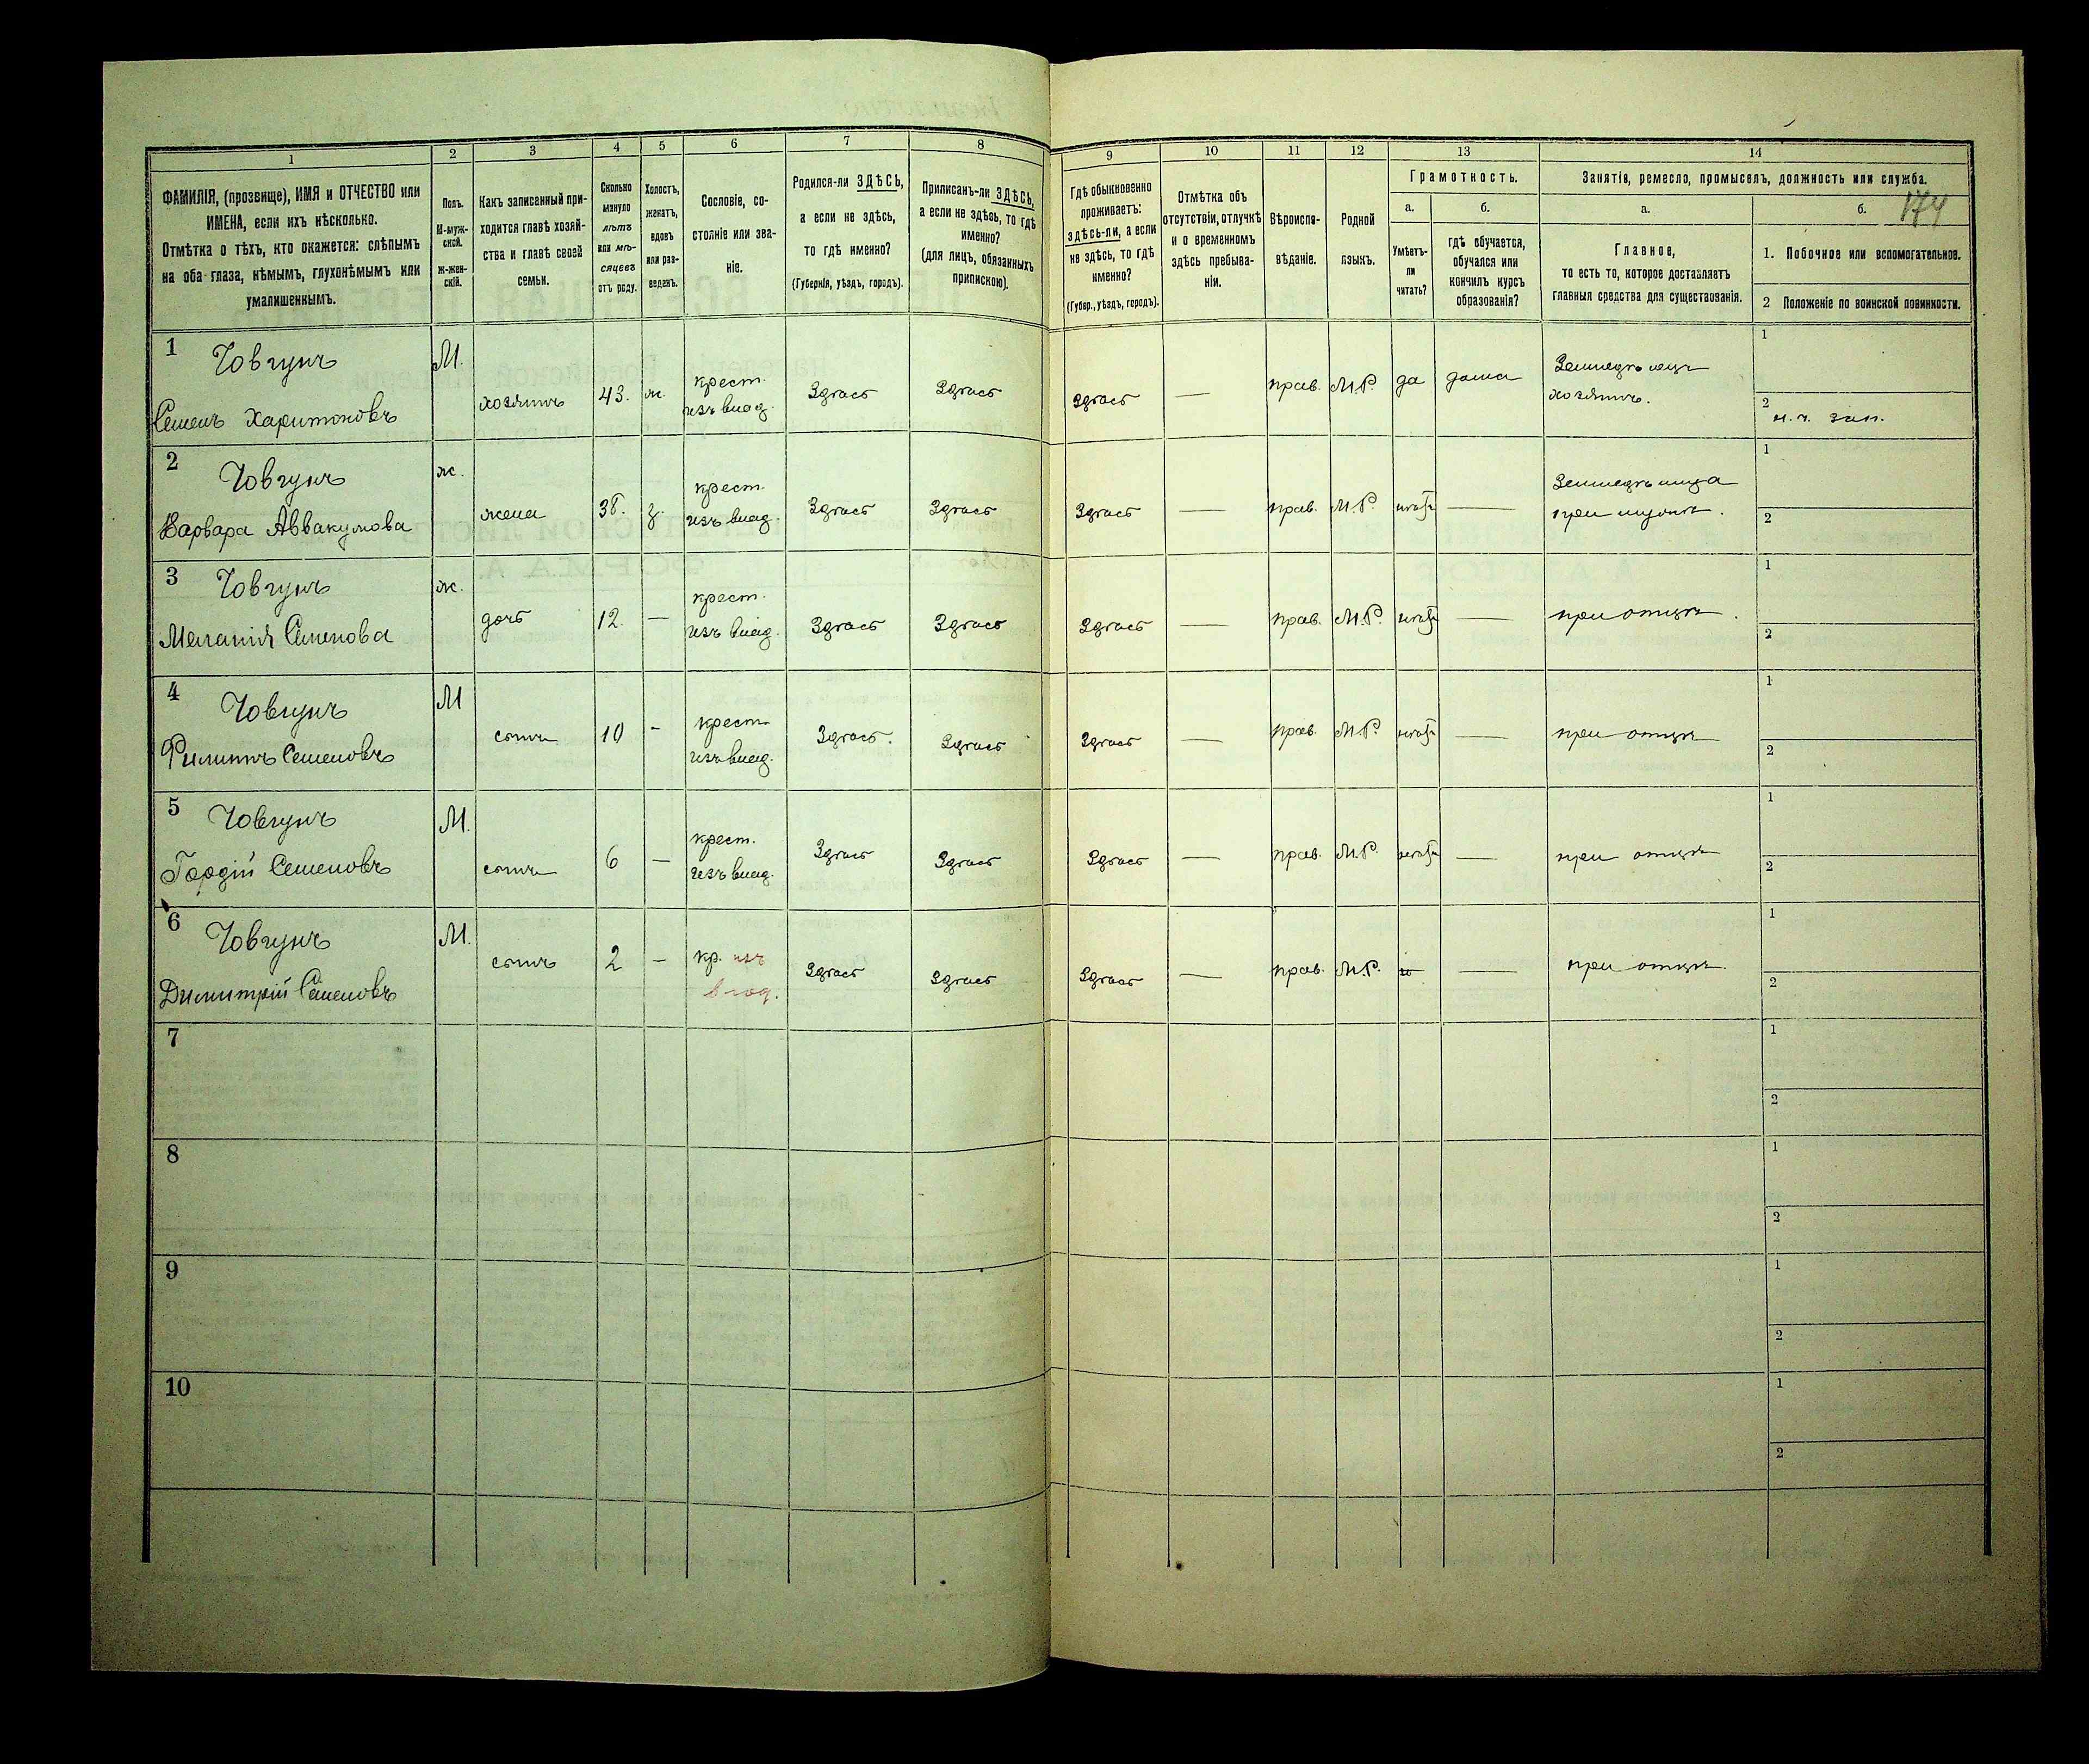 174
1 2 3 4 5 6 7 8 9 10 11 12 13 14
ФАМИЛІЯ, (прозвище), ИМЯ и ОТЧЕСТВО или
ИМЕНА, если ихъ нѣсколько.
Отмѣтка о тѣхъ, кто окажется: слѣпымъ
на оба глаза, нѣмымъ, глухонѣмымъ или
умалишеннымъ.
Полъ.
М-муж-
ской.
ж-жен-
скій.
Какъ записанный при-
ходится главѣ хозяй-
ства и главѣ своей
семьи.
Сколько
минуло
лѣтъ
или мѣ-
сяцевъ
отъ роду.
Холостъ,
женатъ,
вдовъ
или раз-
веденъ.
Сословіе, со-
стояніе или зва-
ніе.
Родился-ли ЗДѢСЬ,
а если не здѣсь,
то гдѣ именно?
(Губернія, уѣздъ, городъ).
Приписанъ-ли ЗДѢСЬ,
а если не здѣсь, то гдѣ
именно?
(для лицъ, обязанныхъ
припискою).
Гдѣ обыкновенно
проживаетъ:
здѣсь-ли, а если
не здѣсь, то гдѣ
именно?
(Губер., уѣздъ, городъ).
Отмѣтка объ
отсутствіи, отлучкѣ
и о временномъ
здѣсь пребыва-
ніи.
Вѣроиспо-
вѣданіе.
Родной
языкъ.
Грамотность.
а.
Умѣетъ-
ли
читать?
б.
гдѣ обучается,
обучался или
кончилъ курсъ
образованія?
Занятія, ремесло, промыселъ, должность или служба.
а.
Главное,
то есть то, которое доставляетъ
главныя средства для существованія.
б.
1. Побочное или вспомогательное.
2 Положеніе по воинской повинности.
1 Човгунъ
Семенъ Харитоновъ
М.
хозяинъ
43.
ж.
крест.
изъ влад.
Здѣсь
Здѣсь
Здѣсь
—
прав.
М.Р.
да
дома
Земледѣлецъ
хозяинъ.
1
2
н. ч. зап.
2 Човгунъ
Варвара Аввакумова
ж.
жена
38.
з.
крест.
изъ влад.
Здѣсь
Здѣсь
Здѣсь
—
прав.
М.Р.
нѣтъ
—
Земледѣлица
при мужѣ.
1
2
3 Човгунъ
Меланія Семенова
ж.
дочь
12.
—
крест.
изъ влад.
Здѣсь
Здѣсь
Здѣсь
—
прав.
М.Р.
нѣтъ
—
при отцѣ.
1
2
4 Човгунъ
Филиппъ Семеновъ
М
сынъ
10
-
крест.
изъ влад.
Здѣсь.
Здѣсь
Здѣсь
—
прав.
М.Р.
нѣтъ
—
при отцѣ
1
2
5 Човгунъ
Гордій Семеновъ
М.
сынъ
6
—
крест.
изъ влад.
Здѣсь
Здѣсь
Здѣсь
—
прав.
М.Р.
нѣтъ
—
при отцѣ
1
2
6 Човгунъ
Димитрій Семеновъ
М.
сынъ
2
—
кр. изъ
влад.
Здѣсь
Здѣсь
Здѣсь
—
прав.
М.Р.
—
при отцѣ.
1
2
7
1
2
8
1
2
9
1
2
10
1
2